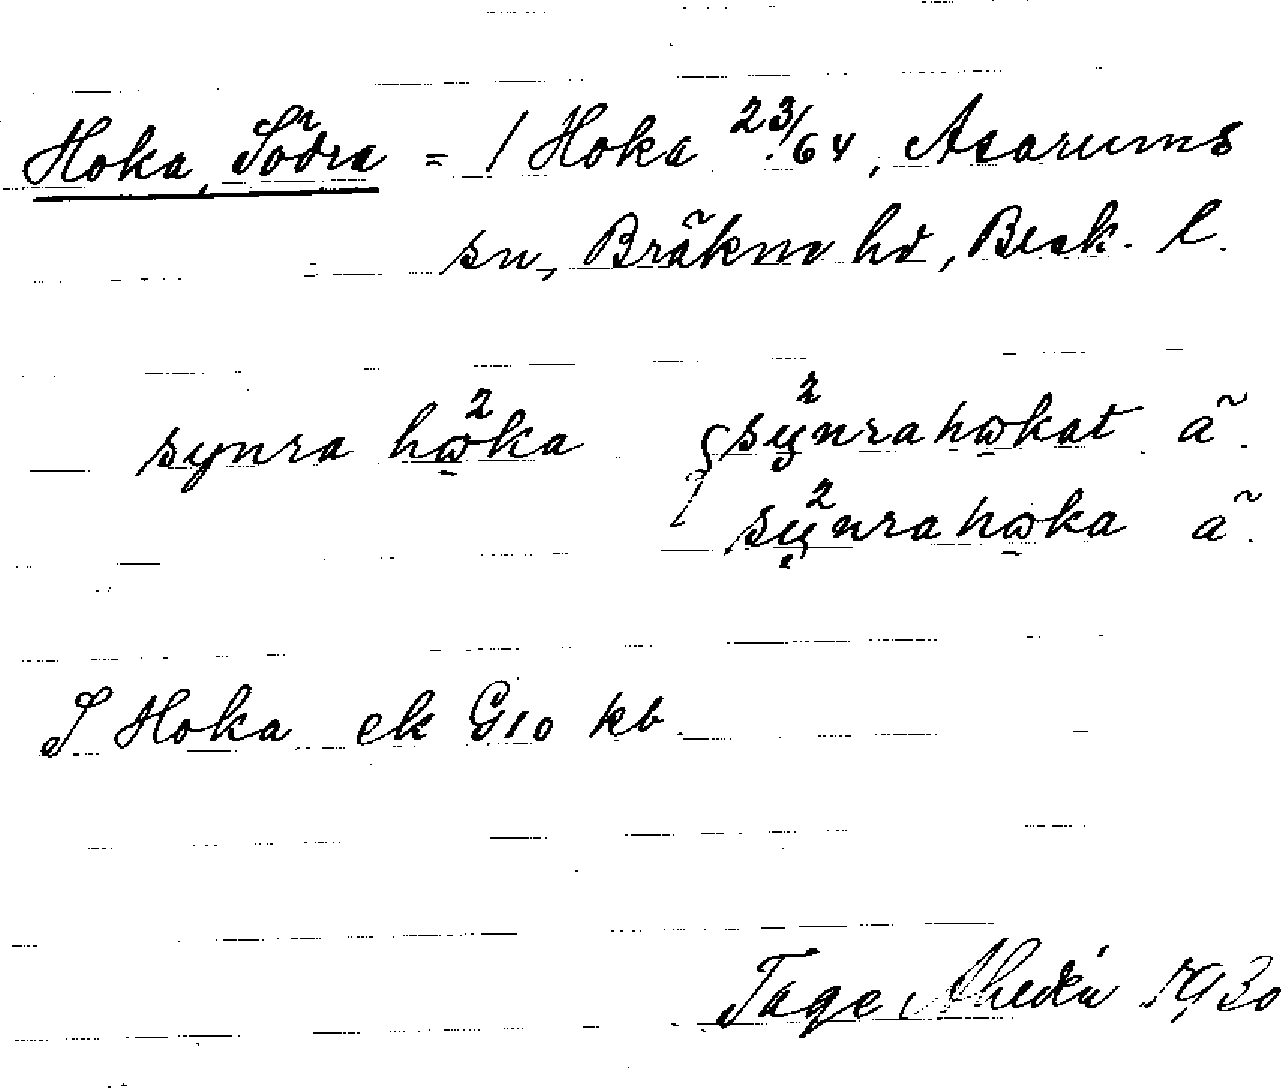 Hoka, Södra = 1 Hoka 23/64, Asarums
sn, Bräkne hd, Blek. l.
synra hωka synrahωkat ã.
synrahωka ã.
S Hoka ek G10 kb.
Tage Ahldén 1930